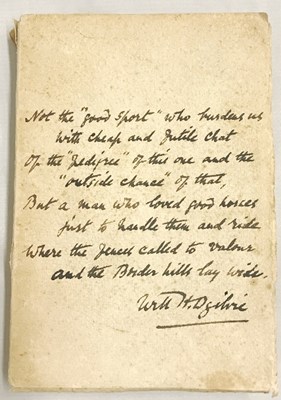 Not the "good sport" who burdens us
with cheap and futile chat
Of the "pedigree" of this one and the
"outside chance" of that,
But a man who loved good horses
just to handle them and ride
Where the fences called to valour
and the Border hills lay wide.
Will H. Ogilvie